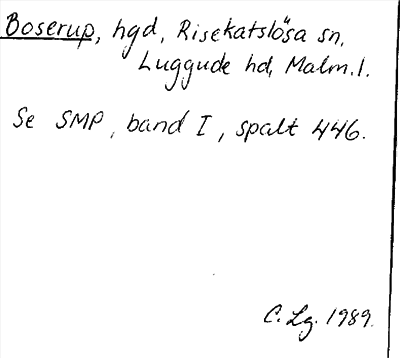 Boserup, hgd, Risekatslösa sn,
Luggude hd, Malm.l.
Se SMP, band I, spalt 446.
C. Lg. 1989.